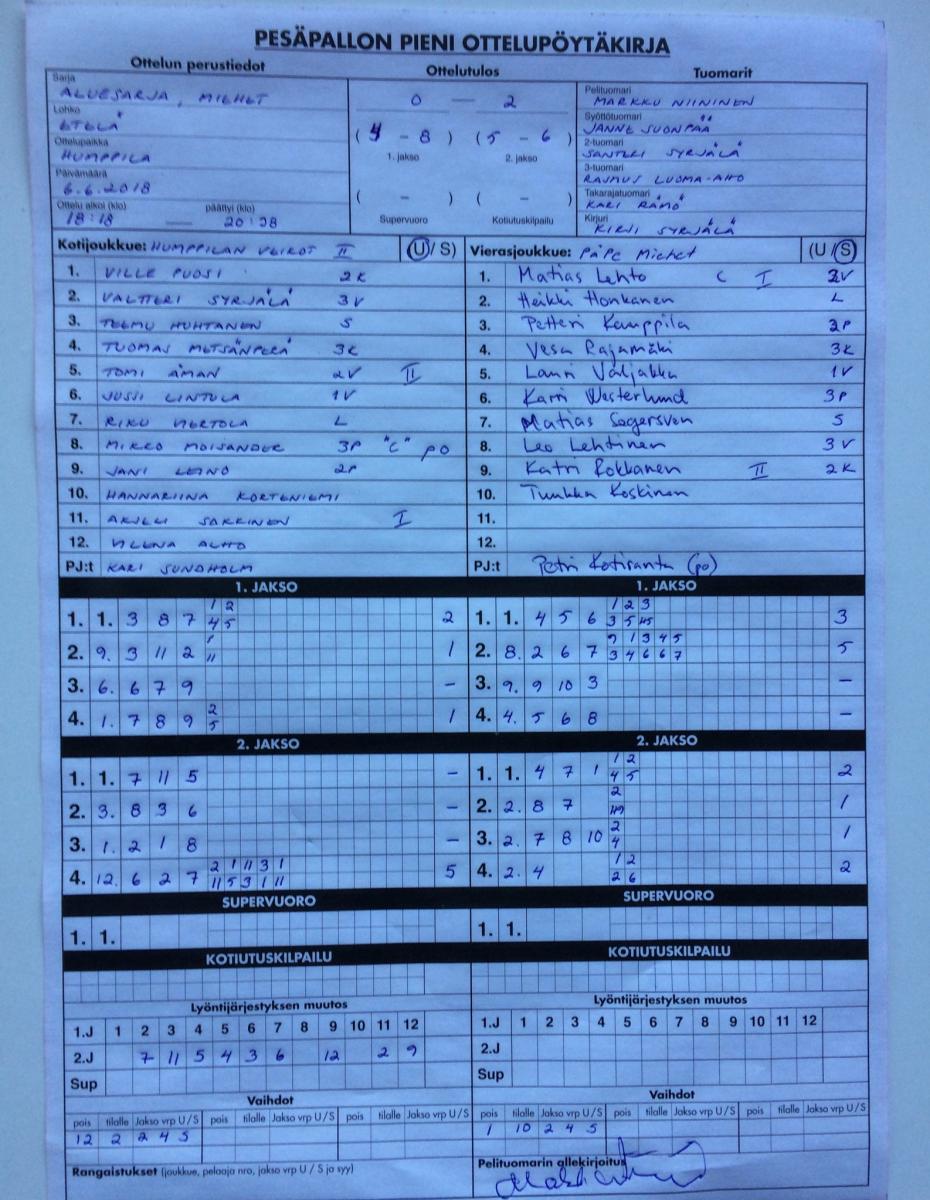 PESÄPALLON PIENI OTTELUPÖYTÄKIRJA
Ottelun perustiedot
Sarja
ALUESARJA, MIEHET
Lohko
ETELÄ
Ottelupaikka
HUMPPILA
Päivämäärä
6.6.2018
Ottelu alkoi (klo) päättyi (klo)
18:18 — 20:38
Ottelutulos
0 — 2
(4 - 8) (5 - 6)
1. jakso 2. jakso
( - ) ( - )
Supervuoro Kotiutuskilpailu
Tuomarit
Pelituomari
MARKKU NIININEN
Syöttötuomari
JANNE SUONPÄÄ
2-tuomari
SANTERI SYRJÄLÄ
3-tuomari
RASMUS LUOMA-AHO
Takarajatuomari
KARI RÄMÖ
Kirjuri
KIRSI SYRJÄLÄ
Kotijoukkue: HUMPPILAN VEIKOT II (U/S)
1. VILLE PUOSI 2K
2. VALTTERI SYRJÄLÄ 3V
3. TEEMU HUHTANEN S
4. TUOMAS METSÄNPERÄ 3K
5. TOMI ÄMAN 2V II
6. JUSSI LINTULA 1V
7. RIKU VIERTOLA L
8. MIKKO MOISANDER 3P "C" po
9. JANI LEINO 2P
10. HANNARIINA KORTENIEMI
11. AKSELI SAKKINEN I
12. VILLENA ALHO
PJ:t KARI SUNDHOLM
Vierasjoukkue: PäPe Miehet (U/S)
1. Matias Lehto C I 2V
2. Heikki Honkanen L
3. Petteri Kamppila 2P
4. Vesa Rajamäki 3K
5. Lauri Väljakka 1V
6. Karri Westerlund 3P
7. Matias Segersven S
8. Leo Lehtinen 3V
9. Katri Rokkanen II 2K
10. Tuukka Koskinen
11.
12.
PJ:t Petri Kotiranta (po)
1. JAKSO
1 2
1. 1. 3 8 7 4 5 2
1
2. 9. 3 11 2 11 1
3. 6. 6 7 9 –
2
4. 1. 7 8 9 5 1
1. JAKSO
1 2 3
1. 1. 4 5 6 3 5 3
9 1 3 4 5
2. 8. 2 6 7 3 4 6 6 7 5
3. 9. 9 10 3 –
4. 4. 5 6 8 –
2. JAKSO
1. 1. 7 11 5 –
2. 3. 8 3 6 –
3. 1. 2 1 8 –
2 1 11 3 1
4. 12. 6 2 7 11 5 3 1 11 5
2. JAKSO
1 2
1. 1. 4 7 1 4 5 2
2
2. 2. 8 7 1
2
3. 2. 7 8 10 4 1
1 2
4. 2. 4 2 6 2
SUPERVUORO
1. 1.
SUPERVUORO
1. 1.
KOTIUTUSKILPAILU
KOTIUTUSKILPAILU
Lyöntijärjestyksen muutos
1.J 1 2 3 4 5 6 7 8 9 10 11 12
2.J 7 11 5 4 3 6 12 2 9
Sup
Lyöntijärjestyksen muutos
1.J 1 2 3 4 5 6 7 8 9 10 11 12
2.J
Sup
Vaihdot
pois tilalle Jakso vrp U/S pois tilalle Jakso vrp U/S pois tilalle Jakso vrp U/S
12 2 2 4 S
Vaihdot
pois tilalle Jakso vrp U/S pois tilalle Jakso vrp U/S pois tilalle Jakso vrp U/S
1 10 2 4 S
Rangaistukset (joukkue, pelaaja nro, jakso vrp U / S ja syy)
Pelituomarin allekirjoitus